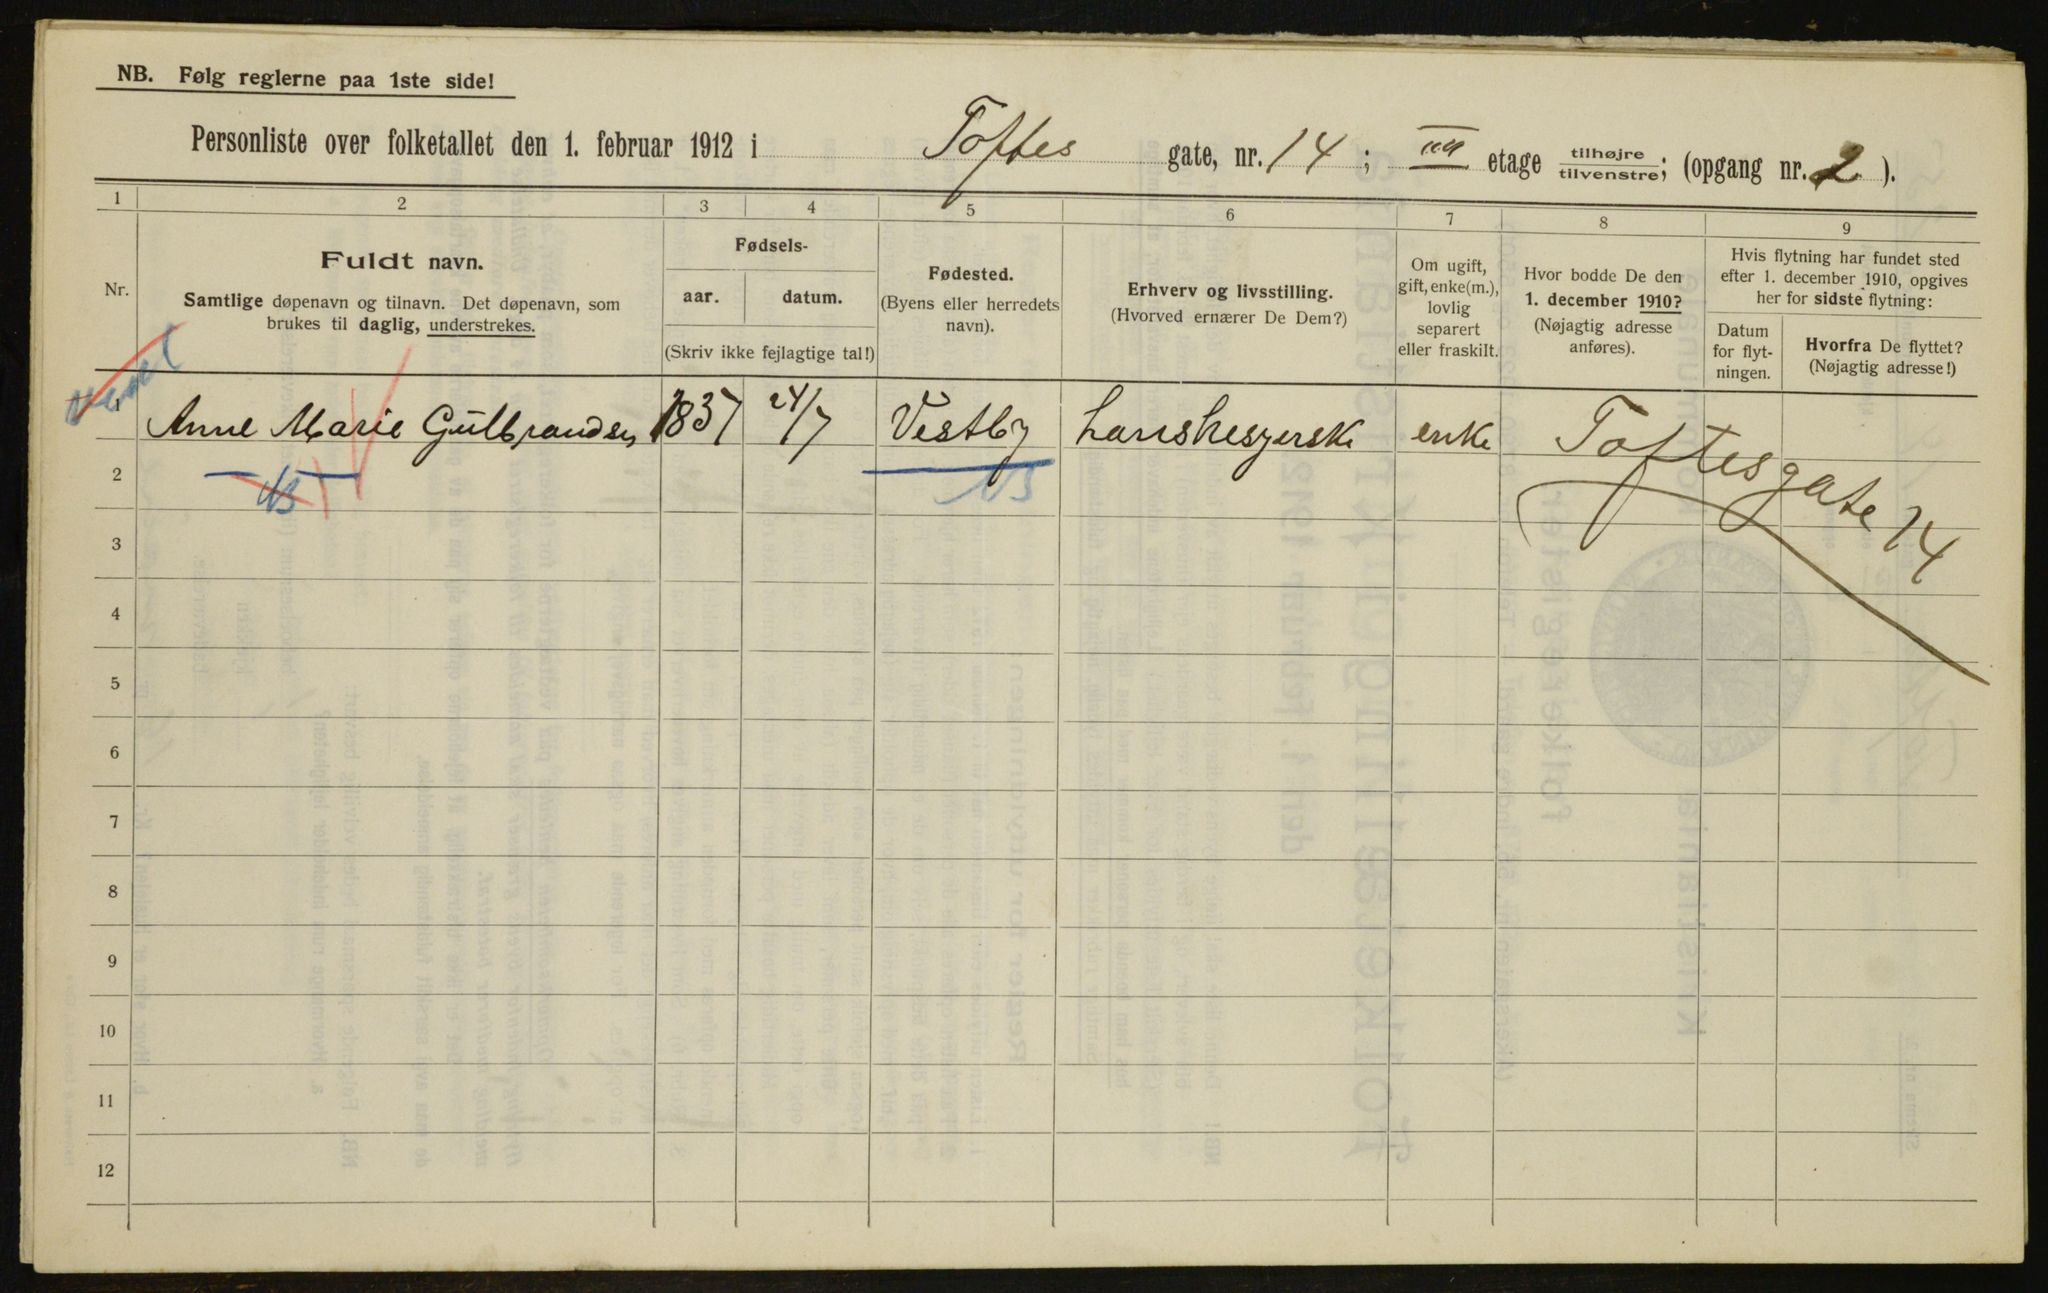 NB. Følg reglerne paa 1ste side!
Personliste over folketallet den 1. februar 1912 i Toftes gate, nr. 14; III etage tilhøjre tilvenstre; (opgang nr. 2).
1 2 3 4 5 6 7 8 9
Nr.
Fuldt navn.
Samtlige døpenavn og tilnavn. Det døpenavn, som
brukes til daglig, understrekes.
Fødsels-
aar. datum.
(Skriv ikke fejlagtige tal!)
Fødested.
(Byens eller herredets
navn).
Erhverv og livsstilling.
(Hvorved ernærer De Dem?)
Om ugift,
gift, enke(m.),
lovlig
separert
eller fraskilt.
Hvor bodde De den
1. december 1910?
(Nøjagtig adresse
anføres).
Hvis flytning har fundet sted
efter 1. december 1910, opgives
her for sidste flytning:
Datum
for flyt-
ningen.
Hvorfra De flyttet?
(Nøjagtig adresse!)
1 Anne Marie Gulbrandsen 1837 24/7 Vestby enke Toftesgate 14
2
NB NB
3
4
5
6
7
8
9
10
11
12